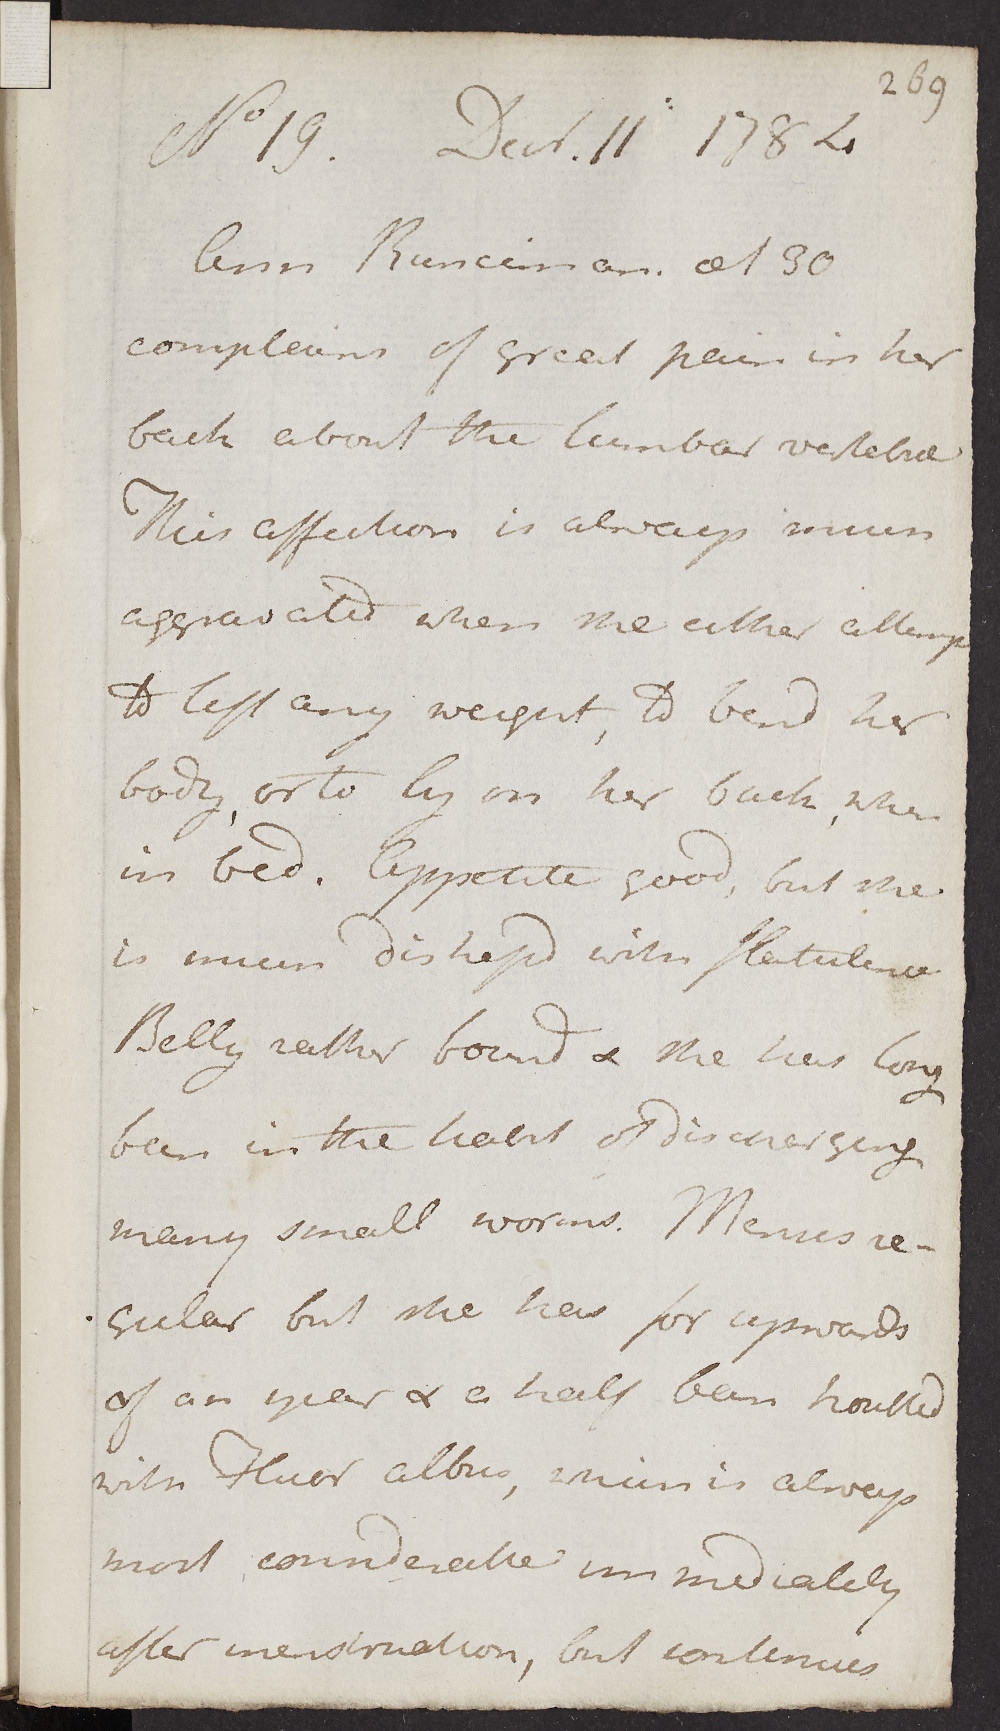 269
No 19. Decr. 11: 1784
Ann Runciman. æt 30
complains of great pain in her
back about the lumbar vertebræ
This affection is always much
aggravated when she either attemps
to left any weight, to bend her
body, or to ly on her back, when
in bed. Appetite good, but she
is much distress'd with flatulence
Belly rather bound & she has long
been in the habit of discharging
many small worms. Menses re-
gular but she has for upwards
of an year & a half been troubled
with Fluor albus, which is always
most considerable immediately
after menstruation, but continues